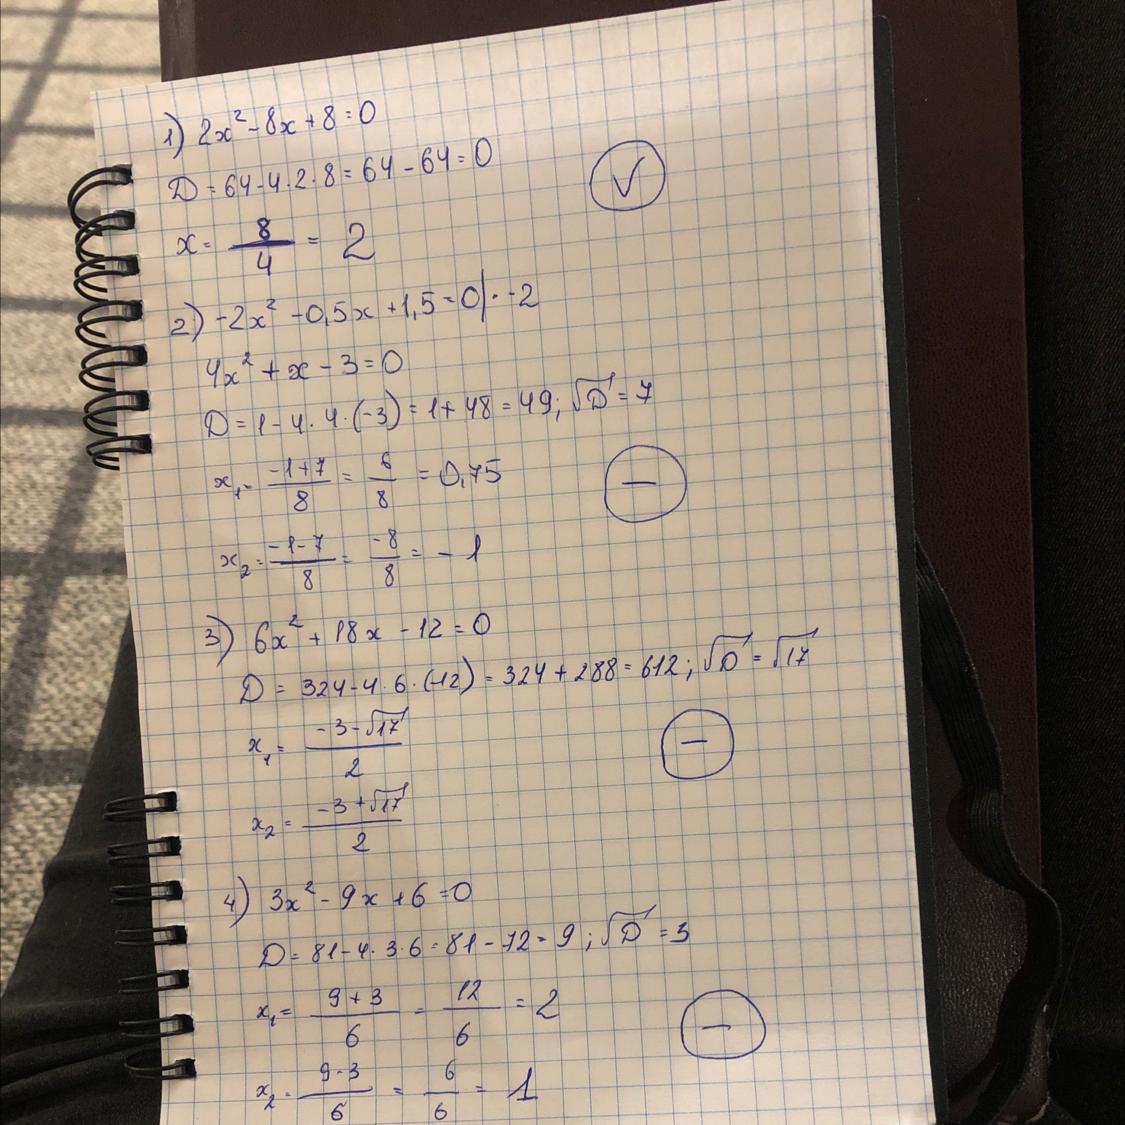 1) 2x² - 8x + 8 = 0
D = 64 - 4 · 2 · 8 = 64 - 64 = 0
x = 8/4 = 2
✓
2) -2x² - 0,5x + 1,5 = 0 | · -2
4x² + x - 3 = 0
D = 1 - 4 · 4 · (-3) = 1 + 48 = 49; √D = 7
x₁ = (-1+7)/8 = 6/8 = 0,75
−
x₂ = (-1-7)/8 = -8/8 = -1
3) 6x² + 18x - 12 = 0
D = 324 - 4 · 6 · (-12) = 324 + 288 = 612; √D = √17
x₁ = (-3-√17)/2
−
x₂ = (-3+√17)/2
4) 3x² - 9x + 6 = 0
D = 81 - 4 · 3 · 6 = 81 - 72 = 9; √D = 3
x₁ = (9+3)/6 = 12/6 = 2
−
x₂ = (9-3)/6 = 6/6 = 1